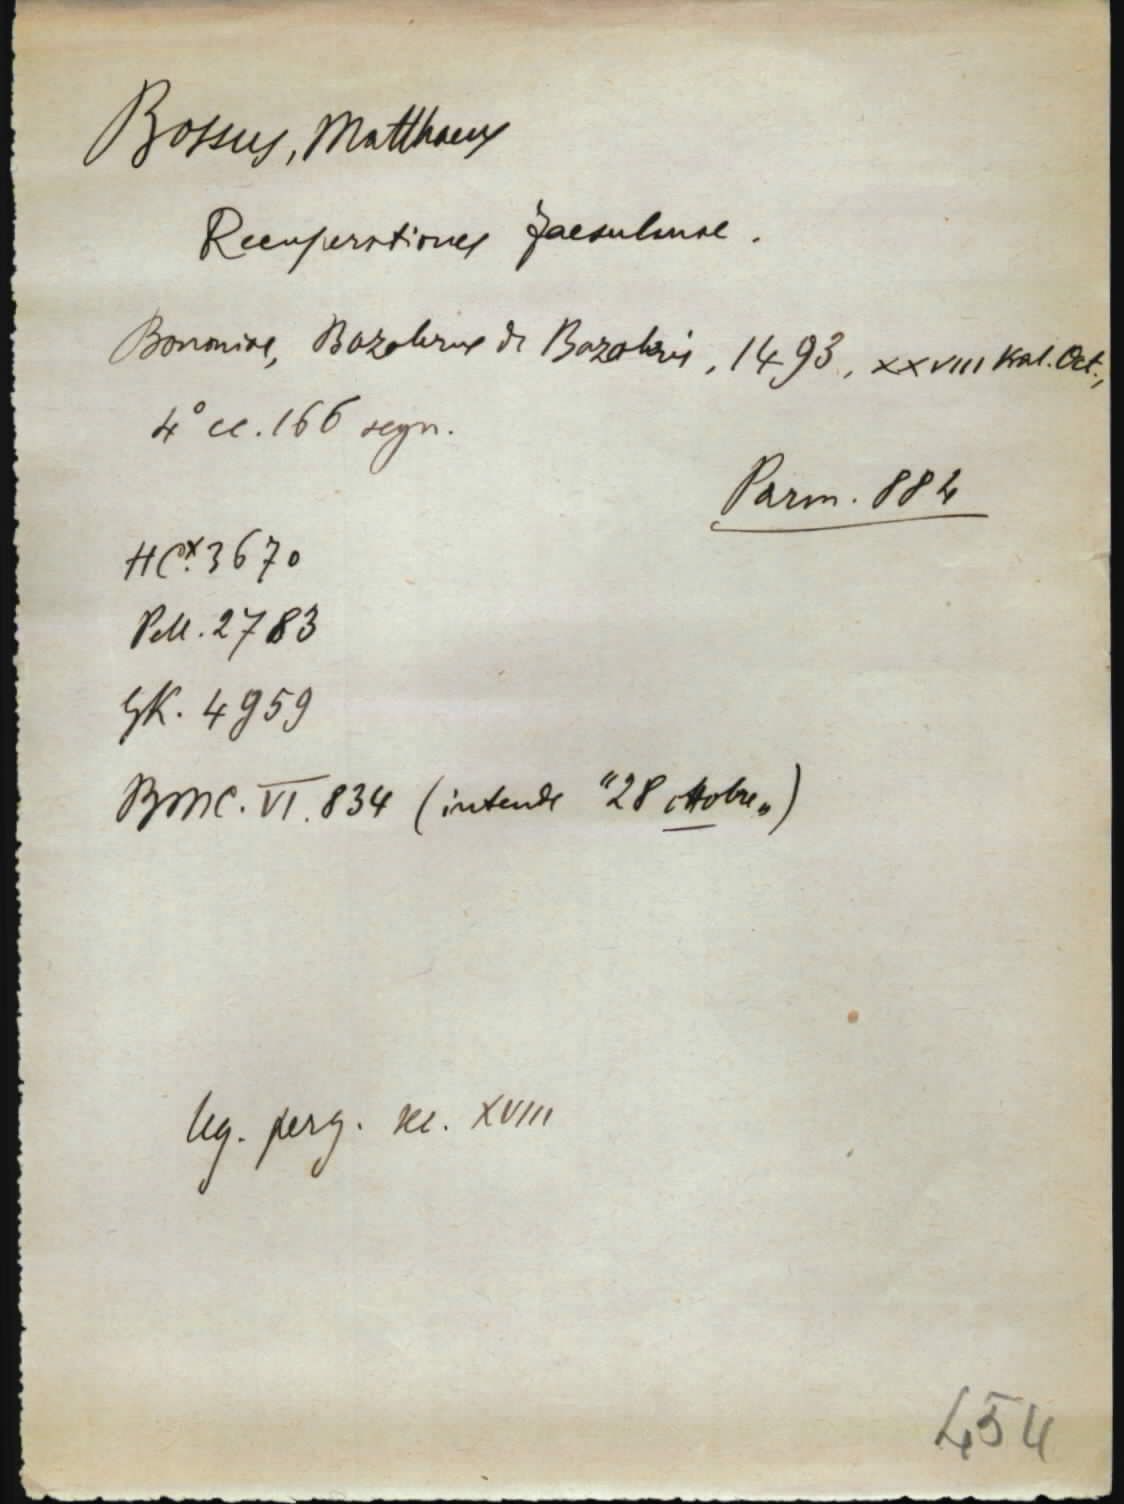 Bossus, Matthaeus
Recuperationes faesulanae.
Bononiae, Bazalerus de Bazaleris, 1493, XXVIII Kal. Oct.,
4° cc. 166 segn.
Parm. 884
HC.x 3670
Pell. 2783
GK. 4959
BMC. VI. 834 (intende "28 ottobre„)
leg. perg. sec. XVIII
454